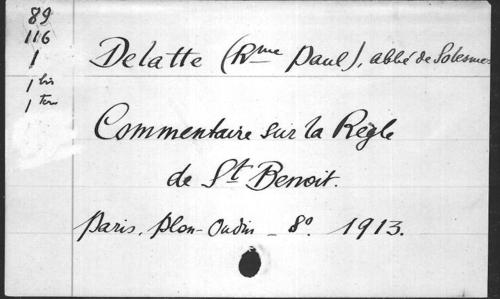 89
116
1
1 bis
1 ter
Delatte (Rme Paul), abbé de Solesmes
Commentaire sur la Règle
de St Benoit.
Paris, Plon-Oudin - 8º. 1913.